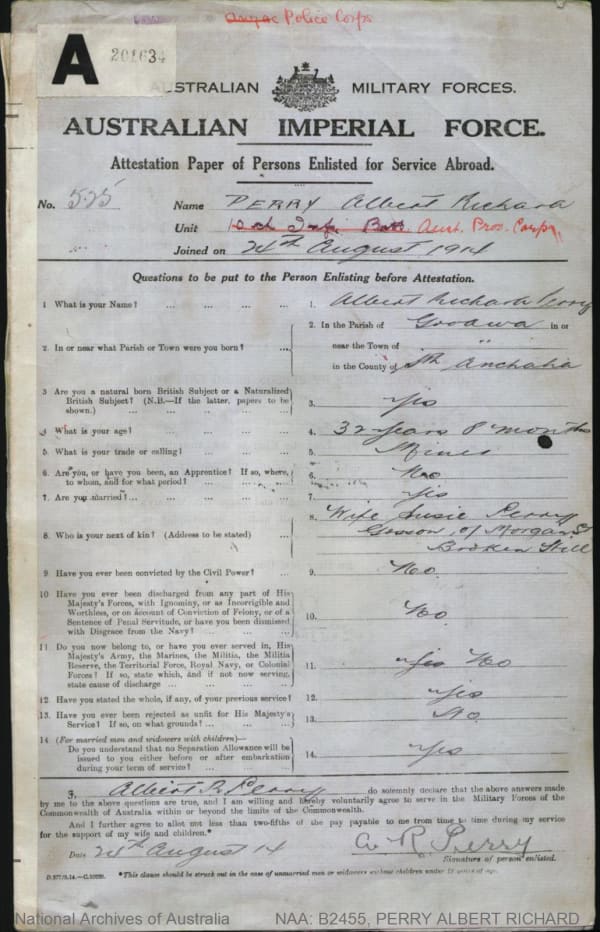 Anzac Police Corps
A 201634
AUSTRALIAN MILITARY FORCES.
AUSTRALIAN IMPERIAL FORCE.
Attestation Paper of Persons Enlisted for Service Abroad.
No. 525 Name PERRY Albert Richard
Unit 10th Inf. Batt Aust. Prov. Corps.
Joined on 24th August 1914
Questions to be put to the Person Enlisting before Attestation.
1 What is your Name? ... ... ... ... 1. Albert Richard Perry
2. In the Parish of Goodwa in or
2. In or near what Parish or Town were you born? ... near the Town of "
in the County of Sth Australia
3 Are you a natural born British Subject or a Naturalized
British Subject? (N.B.—If the latter, papers to be
shown.) ... ... ... ... 3. Yes
4 What is your age? ... ... ... ... 4. 32 years 8 months
5. What is your trade or calling? ... ... ... 5. Miner
6. Are you, or have you been, an Apprentice? If so, where,
to whom, and for what period? ... ... ... 6. No
7. Are you married? ... ... ... ... 7. Yes
8. Who is your next of kin? (Address to be stated) ... 8. Wife Susie Perry
of Morgan St
Broken Hill
9. Have you ever been convicted by the Civil Power? ... 9. No.
10 Have you ever been discharged from any part of His
Majesty's Forces, with Ignominy, or as Incorrigible and
Worthless, or on account of Conviction of Felony, or of a
Sentence of Penal Servitude, or have you been dismissed
with Disgrace from the Navy? ... ... ... 10. No
11 Do you now belong to, or have you ever served in, His
Majesty's Army, the Marines, the Militia, the Militia
Reserve, the Territorial Force, Royal Navy, or Colonial
Forces? If so, state which, and if not now serving,
state cause of discharge ... ... ... ... 11. Yes No
12. Have you stated the whole, if any, of your previous service? 12. Yes
13. Have you ever been rejected as unfit for His Majesty's
Service? If so, on what grounds? ... ... ... 13. No.
14 (For married men and widowers with children)—
Do you understand that no Separation Allowance will be
issued to you either before or after embarkation
during your term of service? ... ... ... 14. Yes
I, Albert R. Perry do solemnly declare that the above answers made
by me to the above questions are true, and I am willing and hereby voluntarily agree to serve in the Military Forces of the
Commonwealth of Australia within or beyond the limits of the Commonwealth.
And I further agree to allot not less than two-fifths of the pay payable to me from time to time during my service
for the support of my wife and children.*
Date 24th August 14 A. R. Perry
Signature of person enlisted.
*This clause should be struck out in the case of unmarried men or widowers without children under 18 years of age.
National Archives of Australia NAA: B2455, PERRY ALBERT RICHARD